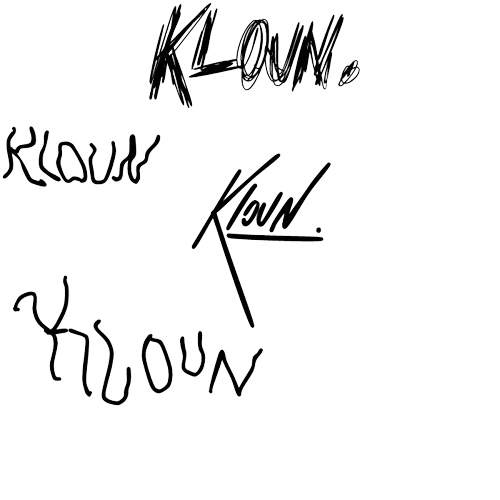 KLOUN.
KLOUN
KloUN.
KLOUN